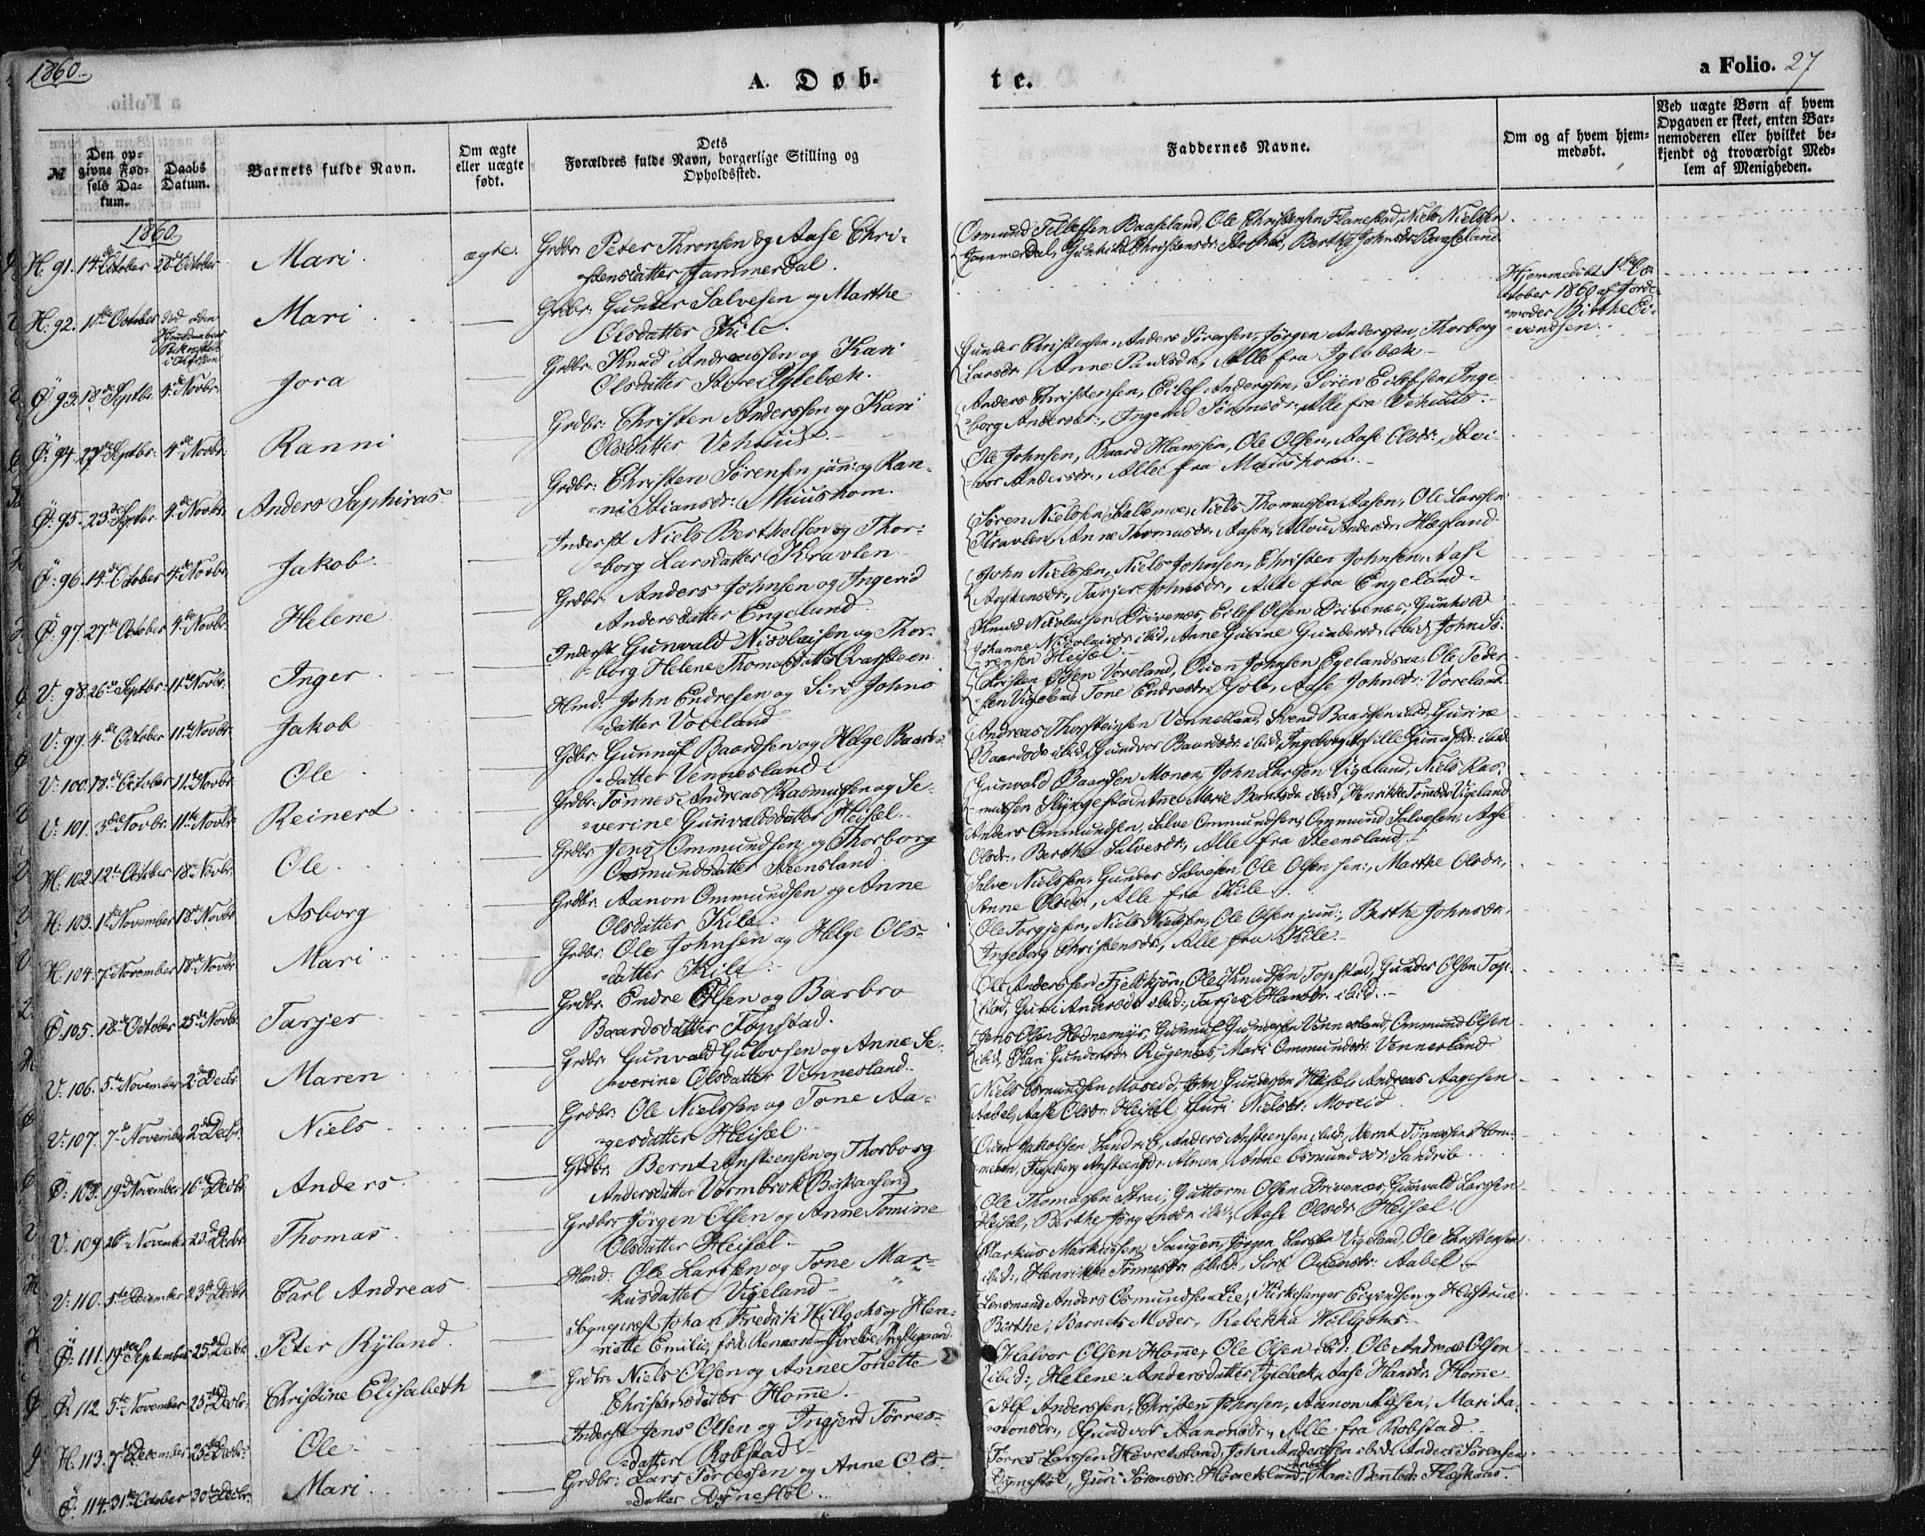 1860.
A. Døb-
te.
a Folio. 27
№
Den opgivne Fødsels Datum.
Daabs Datum.
Barnets fulde Navn.
Om ægte eller uægte født.
Dets Forældres fulde Navn, borgerlige Stilling og Opholdssted.
Faddernes Navne.
Om og af hvem hjemmedøbt.
Ved uægte Børn af hvem Opgaven er skeet, enten Barnemoderen eller hvilket bekjendt og troværdigt Medlem af Menigheden.
1860
H. 91. 14de October 28de October Mari ægte. Grdbr: Peter Thronsen og Aase Chri-
stensdatter Jammerdal.
Osmund Tellefsen Baaseland, Ole Christensen Flanestad, Niels Nielsen
Jammerdal, Gunhild Christensdr: Berthe Johnsdr: Baaseland
H: 92. 1ste October død uden Mari — Grdbr: Gunder Salvesen og Marthe
Olsdatter Kile.
Hjemmedøbt 1ste Oc-
tober 1860 af Jorde-
moder Birthe Ei-
vendsen.
Ø: 93. 18de Septbr. 4de Novbr. Jora — Grdbr: Knud Andreassen og Kari
Olsdatter Store Iglebæk.
Gunder Christensen, Anders Sørensen, Jørgen Anderssen, Thorborg
Larsdr: Anne Paulsdr:, Alle fra Iglebæk
Ø: 94. 27de Septbr: 4de Novbr. Ranni — Grdbr: Christen Anderssen og Kari
Olsdatter Vehuus.
Anders Christensen, Eilef Anderssen, Søren Eilefsen, Inge-
borg Andersdr:, Ingerid Sørensdr:, Alle fra Vehuus.
Ø: 95. 23de Septbr. 4de Novbr. Anders Saphiras — Grdbr: Christen Sørensen jun: og Ran-
ni Stiansdr: Muushom.
Ole Johnsen, Baard Hanssen, Ole Olsen, Aase Olsdr:
Andersdr:, Alle fra Muushom.
Ø: 96. 14de October 4de Novbr. Jakob. — Inderst Niels Berthelsen og Thor-
borg Larsdatter Kravlen
Søren Nielsen Niels Thomassen Aasen, Ole Larsen
Kravlen, Anne Thomasdr: Aasen, Andersdr: Hægland
Ø: 97. 27de October 4de Novbr. Helene — Grdbr: Anders Johnsen og Ingerid
Andersdatter Engeland
John Nielsen, Niels Johnsen, Christen Johnsen, Aase
Anstensdr:, Tarjer Johnsdr:, Alle fra Engeland.
V: 98. 26de Septbr. 11te Novbr. Inger — Inderst Gunvald Nicolaisen og Thor-
borg Helene Thomasdatter Qvarsteen
Knud Nicolaisen Drivenes, Eilef Olsen Drivenes, Gunhild
Johanne Nicolaisdr: ibid, Anne Gurine Gundersdr: ibid, John Sø-
rensen Heisel.
V: 99. 4de October 11te Novbr. Jakob — Hmd: John Endresen og Siri Johns-
datter Voreland
Christen Olsen Voreland, Ouen Johnsen Egelandsaa, Ole Peder-
sen Vigeland, Tone Endresdr: Aase Johnsdr: Voreland
V: 100. 18de October 11te Novbr. Ole — Grdbr: Gunnuf Baardsen og Helge Baards-
datter Vennesland
Andreas Thorsteinsen Vennesland, Svend Baardsen ibid, Gurine
Baardsdr: ibid, Gundvor Baardsdr: ibid, Ingeborg Gunnufsdr: ibid
V: 101. 3die Novbr. 11te Novbr. Reinert — Grdbr: Tønnes Andreas Rasmussen og Se-
verine Gunvaldsdatter Heisel.
Gunvald Baardsen Monen, John Larssen Vigeland, Niels Ras-
mussen Anne Marie Berntsdr: ibid, Henrikke Tønnesdr: Vigeland
H. 102. 12te October 18de Novbr. Ole — Grdbr: Jens Ommundsen og Thorborg
Osmundsdatter Steensland.
Anders Ommundsen, Salve Ommundsen, Ommund Salvesen, Aase
Olsdr:, Berthe Salvesdr:, Alle fra Steensland.
H: 103. 1ste November 18de Novbr. Asborg — Grdbr: Aanon Ommundsen og Anne
Olsdatter Kile.
Salve Nielsen, Gunder Salvesen, Ole Olsen sen:, Marthe Olsdr:,
Anne Olsdr:, Alle fra Kile.
H. 104. 7de November 18de Novbr. Mari — Grdbr: Ole Johnsen og Helge Ols-
datter Kile.
Ole Torgjesen, Niels Nielsen, Ole Olsen jun:, Berthe Johnsdr:,
Ingeborg Christensdr:, Alle fra Kile.
Ø. 105. 18de October 25de Novbr. Tarjer — Grdbr: Endre Olsen og Barbro
Baardsdatter Topstad.
Ole Anderssen Fjeldkjørn, Ole Knudsen Topstad, Gunder Olsen Top-
stad, Guri Andersdr: ibid:, Tarjer Hansdr: ibid.
V: 106. 5te November 2den Decbr. Maren — Grdbr: Gunvald Gulovsen og Anne Se-
verine Olsdatter Vennesland.
Jens Olsen Hodnemyr, Gunnuf Gundersen Vennesland, Ommund Olsen
ibid, Kari Gundersdr: Rugenes, Mari Ommundsdr: Vennesland
V: 107. 7de November 2den Decbr. Niels — Grdbr: Ole Nielssen og Tone Aa-
gesdatter Heisel.
Niels Osmundsen Moseid, John Gundersen Heisel, Andreas Aagesen
Aabel, Aase Olsdr: Heisel, Guri Nielsdr: Moseid
Ø: 108. 19de November 16de Decbr. Anders — Grdbr: Bernt Ansteensen og Thorborg
Andersdatter Vormbrok (Birkaasen)
Ouen Jakobsen Sandrib, Anders Ansteensen ibid, Bernt Tønnessen Hom-
men, Ingeborg Ansteensdr: Almen, Anne Osmundsdr: Sandrib
V: 109. 26de November 23de Decbr. Thomas — Grdbr: Jørgen Olsen og Anne Tomine
Olsdatter Heisel.
Ole Thomassen Strai, Guttorm Olsen Drivenes, Gunvald Larssen
Heisel, Berthe Jørgensdr: ibid, Aase Olsdr: Heisel.
V: 110. 5te December 23de Decbr. Carl Andreas — Hmd: Ole Larssen og Tone Mar-
kusdatter Vigeland
Markus Markussen Saugen, Jørgen Larssen Vigeland, Ole Christensen
ibid:, Henrikke Tønnesdr: ibid:, Siri Ouensdr: Aabel
Ø: 111. 19de September 25de Decbr. Peter Ryland. — Sognepræst Johan Fredrik Willgohs og Hen-
riette Emilie, født Rennord Øvrebø Præstegaard.
Lensmand Anders Osmundsen Lie, Kirkesanger Eivindsen og Hustrue
Berthe, Barnets Moder, Rebekka Willgohs.
Ø. 112. 5te November 25de Decbr. Christine Elisabeth — Grdbr: Niels Olsen og Anne Tonette
Christensdatter Home.
Halvor Olsen Home, Ole Olsen ibid: Ole Andreas Olsen
ibid:, Helene Andersdatter Iglebæk, Aase Hansdr: Home
H. 113. 7de December 25de Decbr: Ole — Inderst Jens Olsen og Ingjerd Tørres-
datter Robstad
Alf Anderssen, Christen Johnsen, Aanon Alfsen, Mari Aa-
nonsdr:, Gundvor Aanonsdr:, Alle fra Robstad
Ø. 114. 31te October 30de Decbr. Mari — Grdbr: Lars Tørressen og Anne Ols-
datter Dynestøl.
Tørres Larssen Hovretsland, John Anderssen ibid: Anders Sørensen
Dynestøl, Guri Sørensdr: Hovretsland, Mari Berntsdr: